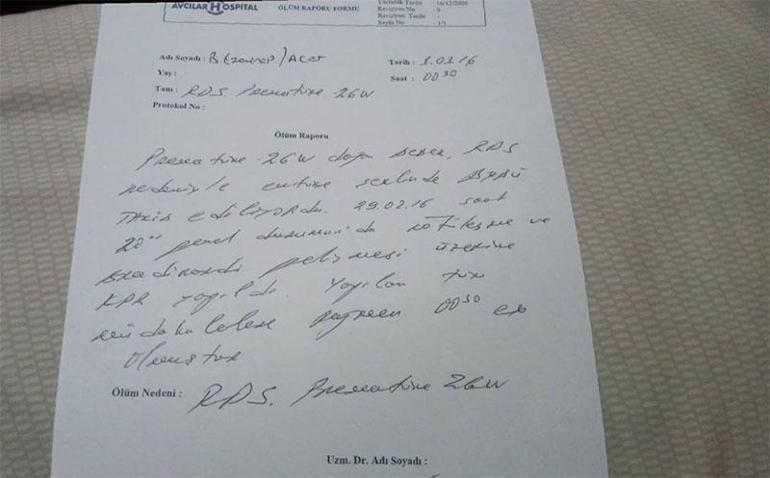 AVCILAR HOSPITAL
ÖLÜM RAPORU FORMU
Yürürlük Tarihi 16/12/2009
Revizyon No 0
Revizyon Tarihi -
Sayfa No 1/1
Adı Soyadı : B (Zeynep) / Acet
Tarih : 1.03.16
Yaş :
Saat : 00 30
Tanı : RDS. Prematüre 26W
Protokol No :
Ölüm Raporu
Prematüre 26W doğan bebek, RDS
nedeniyle entübe şekilde
takip ediliyordu. 29.02.16 saat
genel durumunda kötüleşme ve
bradikardi gelişmesi üzerine
KPR yapıldı yapılan tüm
müdahalelere rağmen 00 30 ex
olmuştur
Ölüm Nedeni : RDS. Prematüre 26W
Uzm. Dr. Adı Soyadı :